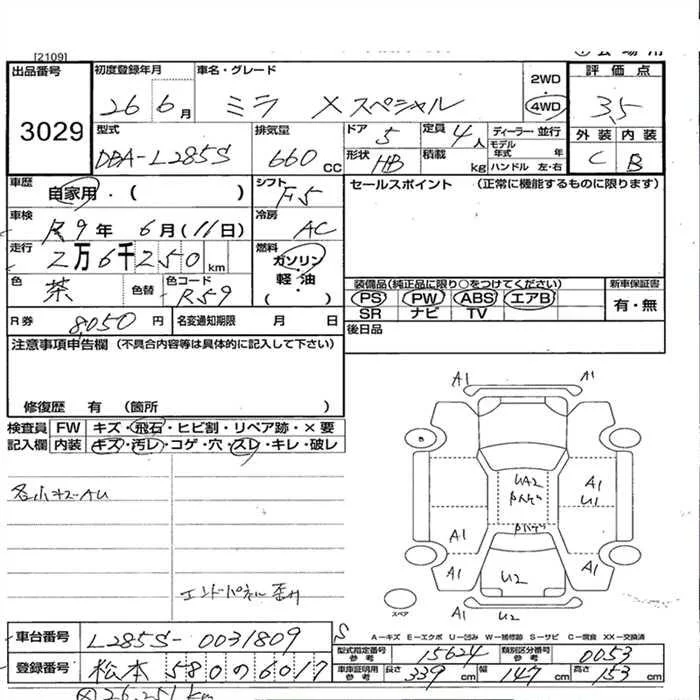 [2109]
出品番号 初度登録年月 車名・グレード 2WD 評価点
3029 26 6月 ミラ Xスペシャル 4WD 3.5
型式 排気量 ドア 定員 ディーラー・並行 外装 内装
DBA-L285S 660CC 5 4人 モデル年式 年 C B
形状 HB 積載 kg ハンドル 左・右
車歴 自家用・( ) シフト F5 セールスポイント (正常に機能するものに限ります)
車検 R9年 6月(11日) 冷房 AC
走行 2万6千250km 燃料 ガソリン・軽油 ( )
色 茶 色替 色コード R59
装備品(純正品に限り○をつけてください) 新車保証書
PS PW ABS エアB 有・無
SR ナビ TV
R券 8,050円 名変通知期限 月 日 後日品
注意事項申告欄 (不具合内容等は具体的に記入して下さい)
修復歴 有 (箇所 )
検査員 FW キズ・飛石・ヒビ割・リペア跡・×要
記入欄 内装 キズ・汚レ・コゲ・穴・スレ・キレ・破レ
A1 A1
UA2 A1
U1
A1 A1
A1 U2 A1
スペア A1 U2
A-キズ E-エクボ U-凹み W-補修跡 S-サビ C-腐食 XX-交換済
車台番号 L285S-0031809 型式指定番号 参考 15624 類別区分番号 参考 0053
登録番号 松本 580の6017 車庫証明用 参考 長さ 339cm 幅 147cm 高さ 153cm
26,251km